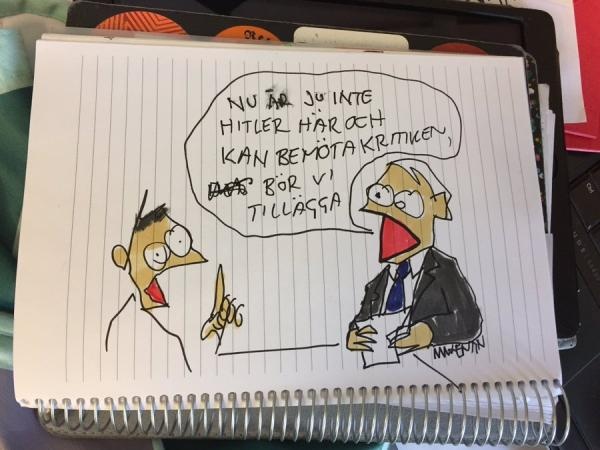 NU ÄR JU INTE
HITLER HÄR OCH
KAN BEMÖTA KRITIKEN,
BÖR VI
TILLÄGGA